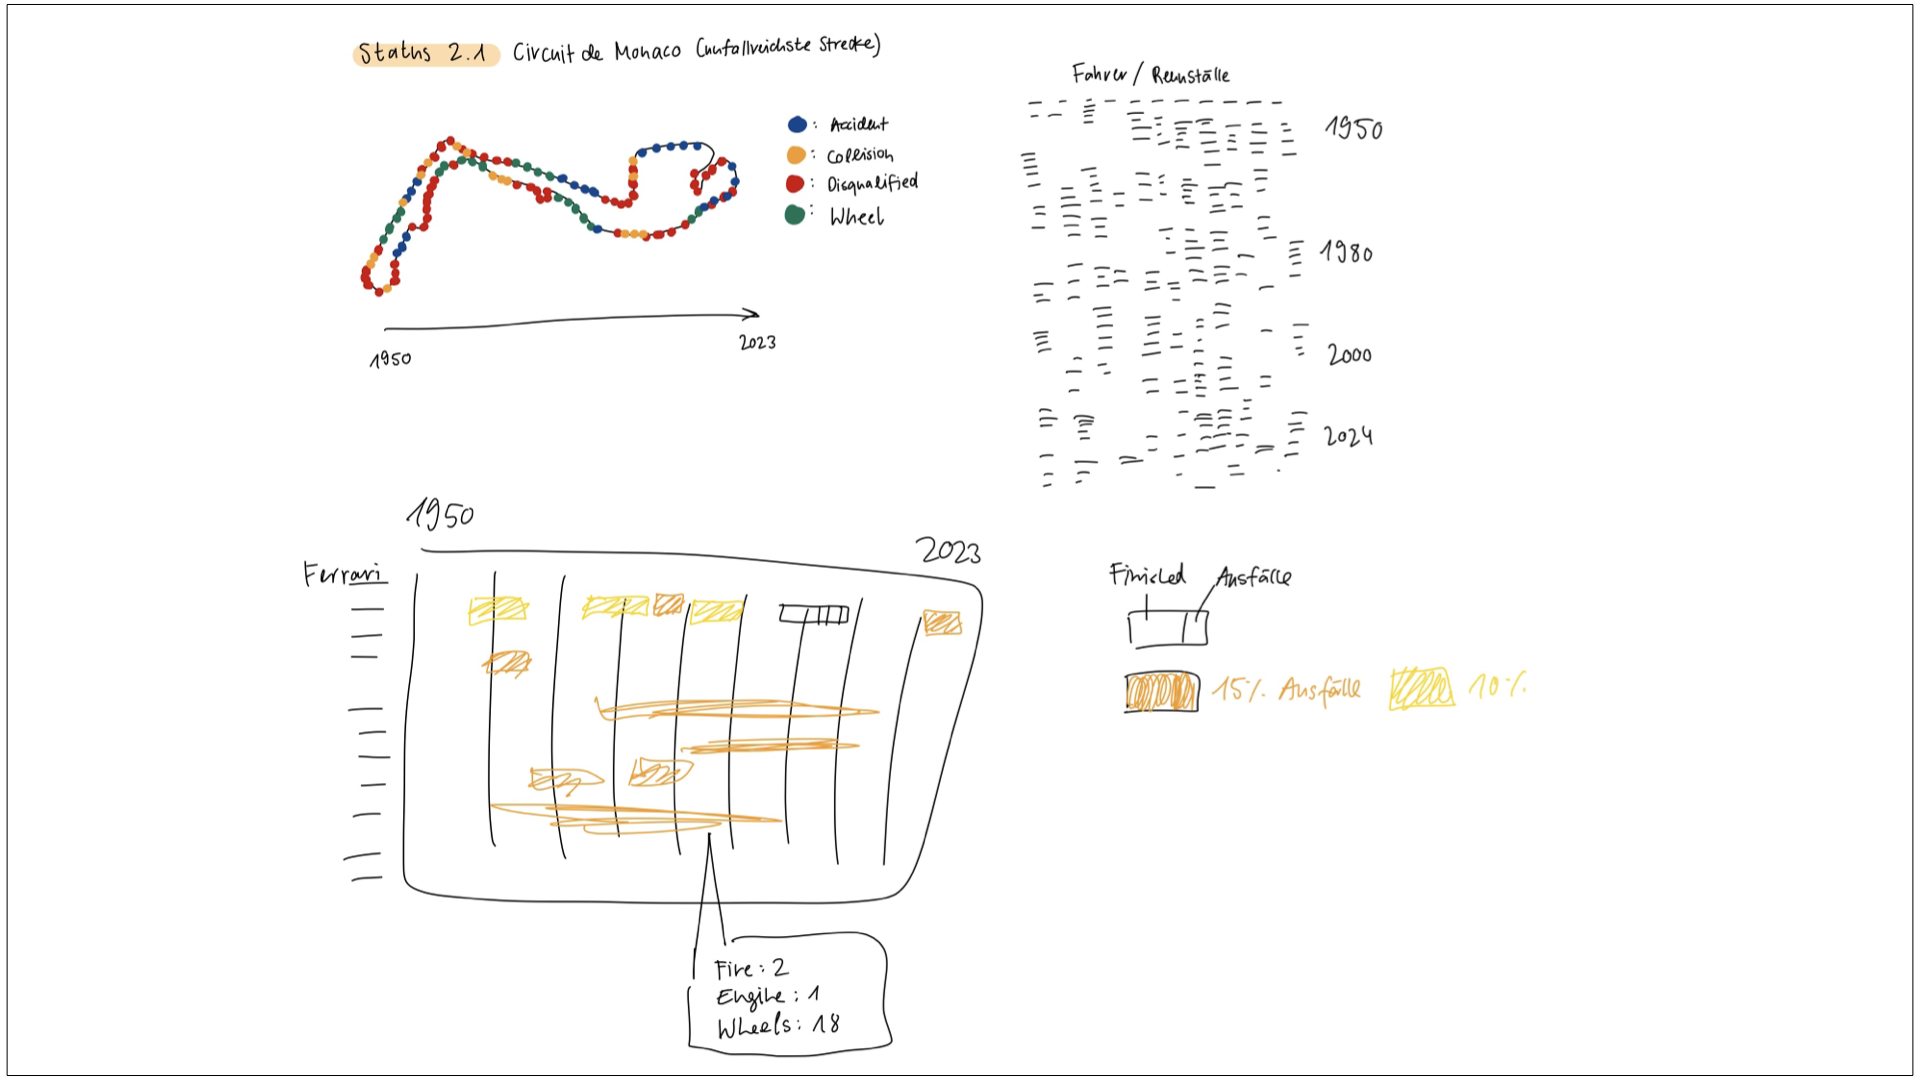 Status 2.1 Circuit de Monaco (unfallreichste Strecke)
: Accident
: Collision
: Disqualified
: Wheel
1950
2023
Fahrer / Rennställe
1950
1980
2000
2024
1950
2023
Ferrari
Fire : 2
Engine : 1
Wheels : 18
Finished Ausfälle
15% Ausfälle 10%